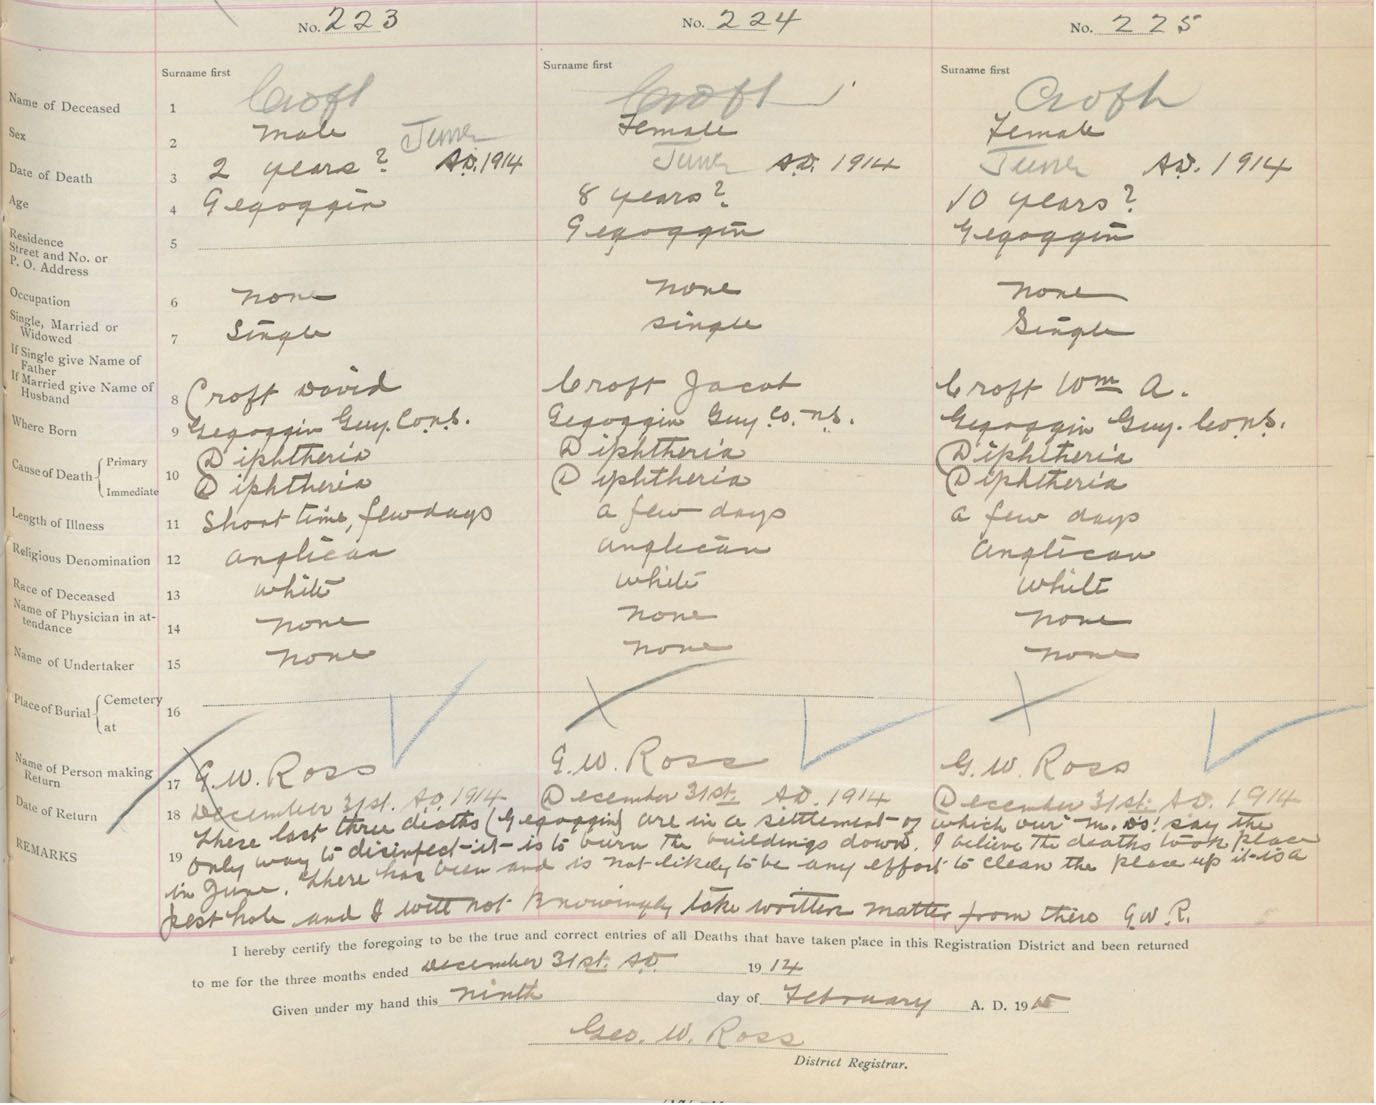 No. 223 No. 224 No. 225
Surname first Surname first Surname first
Name of Deceased 1 Croft Croft Croft
Sex 2 Male Female Female
Date of Death 3 June A.D. 1914 June A.D. 1914 June A.D. 1914
Age 4 2 years? 8 years? 10 years?
Residence
Street and No. or
P. O. Address 5 Gegoggin Gegoggin Gegoggin
Occupation 6 none none none
Single, Married or
Widowed 7 Single single Single
If Single give Name of
Father
If Married give Name of
Husband 8 Croft David Croft Jacob Croft Wm A.
Where Born 9 Gegoggin Guy. Co. N.S. Gegoggin Guy Co. N.S. Gegoggin Guy. Co. N.S.
Cause of Death { Primary Diphtheria Diphtheria Diphtheria
10
Immediate Diphtheria Diphtheria Diphtheria
Length of Illness 11 Short time, few days a few days a few days
Religious Denomination 12 Anglican Anglican Anglican
Race of Deceased 13 white white white
Name of Physician in at-
tendance 14 none none none
Name of Undertaker 15 none none none
Place of Burial { Cemetery
16
at
Name of Person making
Return 17 G. W. Ross G. W. Ross G. W. Ross
Date of Return 18 December 31st. A.D. 1914 December 31st. A.D. 1914 December 31st. A.D. 1914
REMARKS 19 These last three deaths (Gegoggin) are in a settlement of which our M.Ds! say the
only way to disinfect it is to burn the buildings down. I believe the deaths took place
in June. There has been and is not likely to be any effort to clean the place up it is a
pest hole and I will not knowingly take written matter from there G. W. R.
I hereby certify the foregoing to be the true and correct entries of all Deaths that have taken place in this Registration District and been returned
to me for the three months ended December 31st. A.D. 1914
Given under my hand this ninth day of February A. D. 1915
Geo. W. Ross
District Registrar.